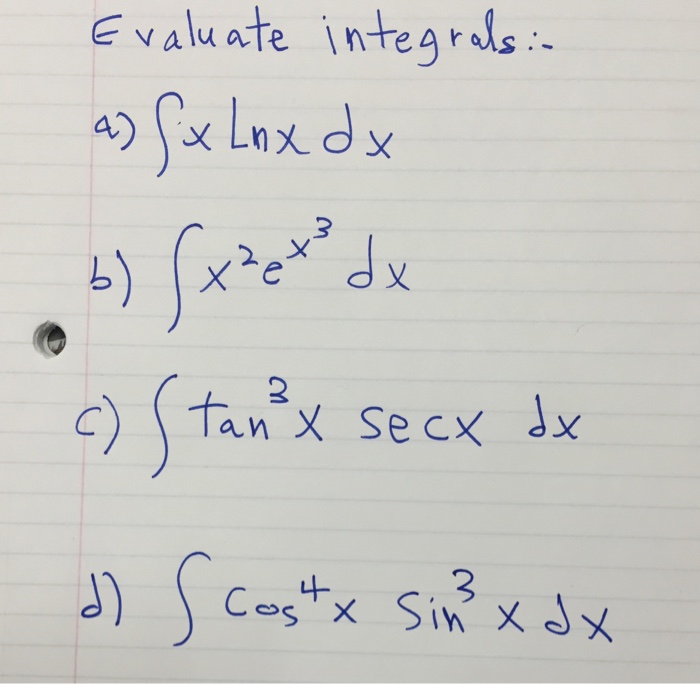 Evaluate integrals:-
a) ∫x Lnx dx
b) ∫x²eˣ³ dx
c) ∫tan³x secx dx
d) ∫cos⁴x Sin³x dx